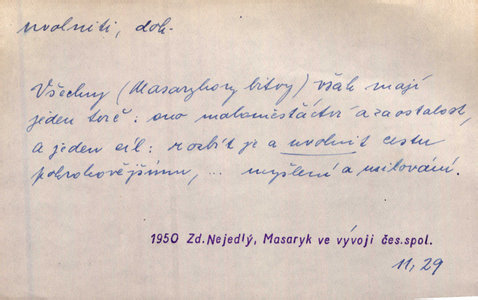 uvolniti, dok.
Všechny (Masarykovy bitvy) však mají
jeden terč: ono maloměšťáctví a zaostalost,
a jeden cíl: rozbít je a uvolnit cestu
pokrokovějšímu, ... myšlení a usilování.
1950 Zd. Nejedlý, Masaryk ve vývoji čes. spol.
11, 29